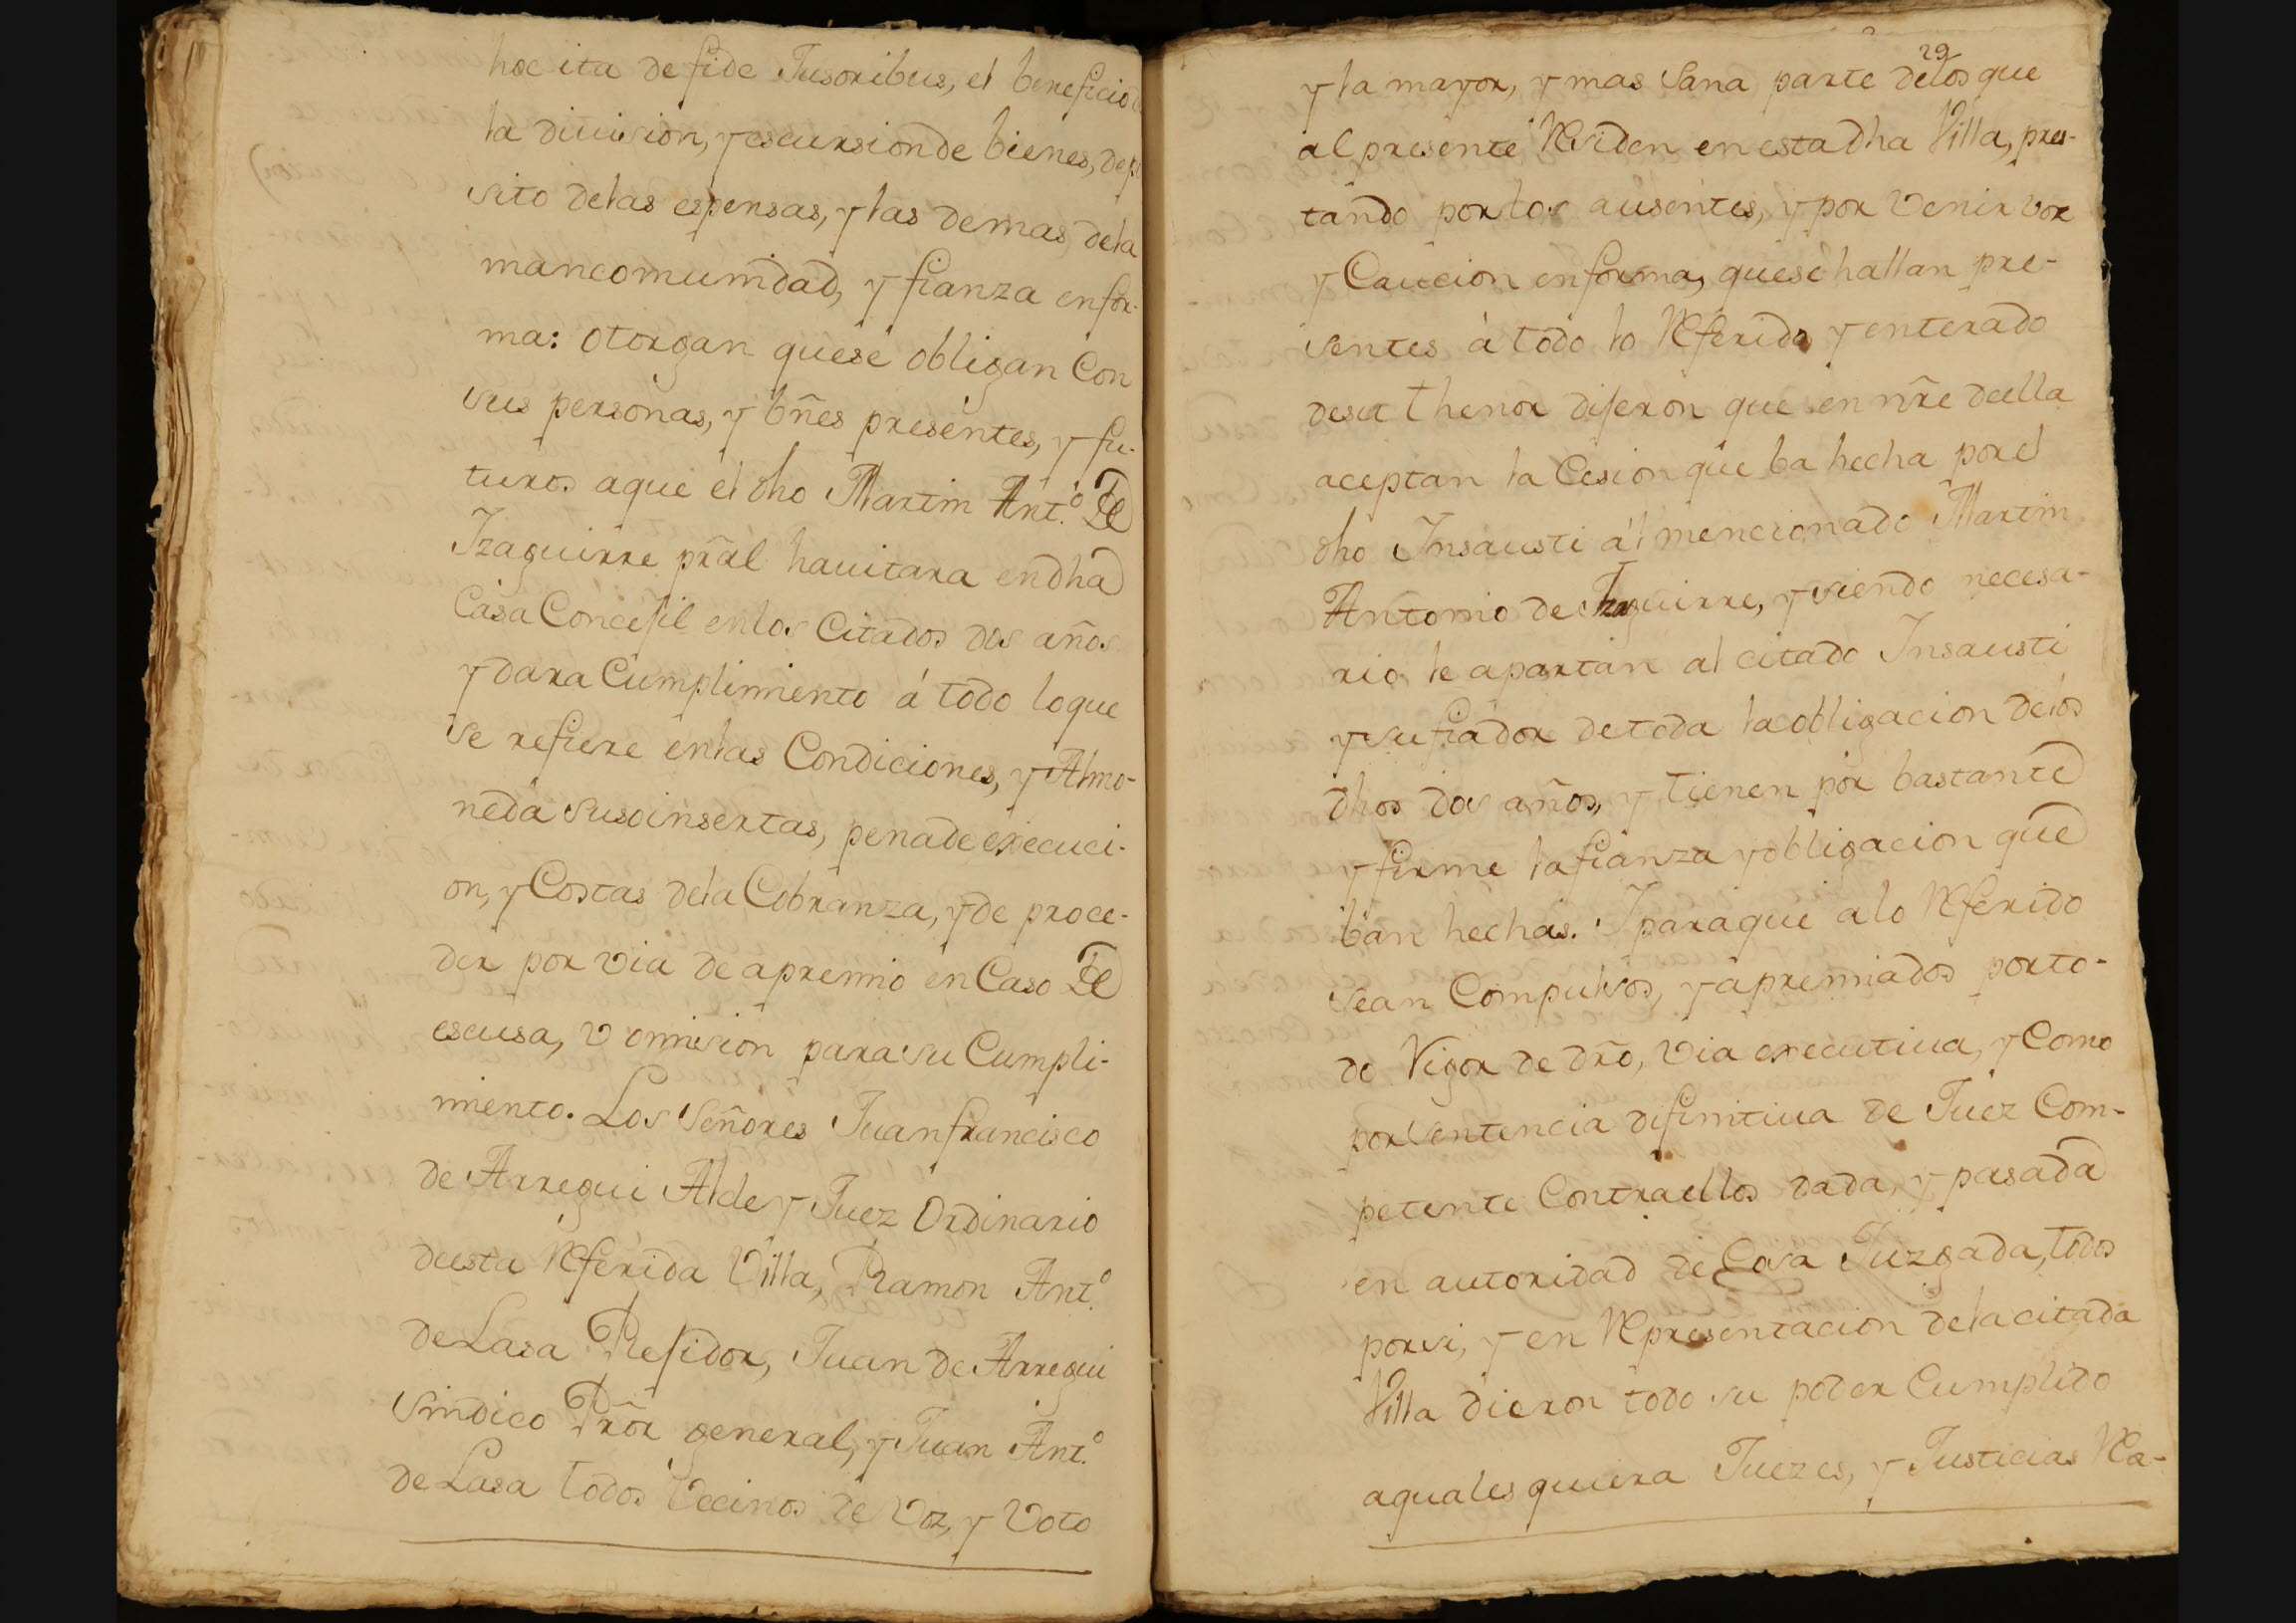 hoc ita de fide Jusoribus, el beneficio de
la diuision, y escursion de bienes, depo
sito delas espensas, y las demas dela
mancomunidad, y fianza enfor-
ma: otorgan quese obligan Con
sus personas, y bñes presentes, y fu-
turos aque el dho Martin Ant.º De
Izaguirre pral hauitara endha
Casa Concejil enlos Citados dos años
y dara Cumplimiento á todo loque
se refiere enlas Condiciones, y Almo-
neda susoinsertas, penade execuci-
on, y Costas dela Cobranza, y de proce-
der por via de apremio en Caso De
escusa, v omision para su Cumpli-
miento. Los Señores Juan francisco
de Arregui Alde y Juez Ordinario
desta Referida Villa, Ramon Ant.º
de Lasa Rejidor, Juan de Arregui
Sindico Pror general, y Juan Ant.º
de Lasa todos Vecinos de Voz, y Voto
29
y la mayor, y mas Sana parte delos que
al presente Residen en esta dha Villa, pres-
tando porlos ausentes, y por venir voz
y Caucion enforma, quese hallan pre-
sentes á todo lo Referido y enterado
desu thenor dijeron que en nre deella
aceptan la Cesion que ba hecha porel
dho Insausti ál mencionado Martin
Antonio de Izaguirre, y siendo necesa-
rio le apartan al citado Insausti
y su fiador detoda la obligacion delos
dhos dos años, y tienen por bastante
y firme la fianza y obligacion que
ban hechas. Y paraque alo Referido
sean Compulsos, y apremiados porto-
do Vigor de dro, via executiua, y Como
por sentencia difinitiua de Juez Com-
petente Contraellos dada, y pasada
en autoridad de Cosa Juzgada, todos
porsi, y en Representacion dela citada
Villa dieron todo su poder Cumplido
aquales quiera Juezes, y Justicias Rea-